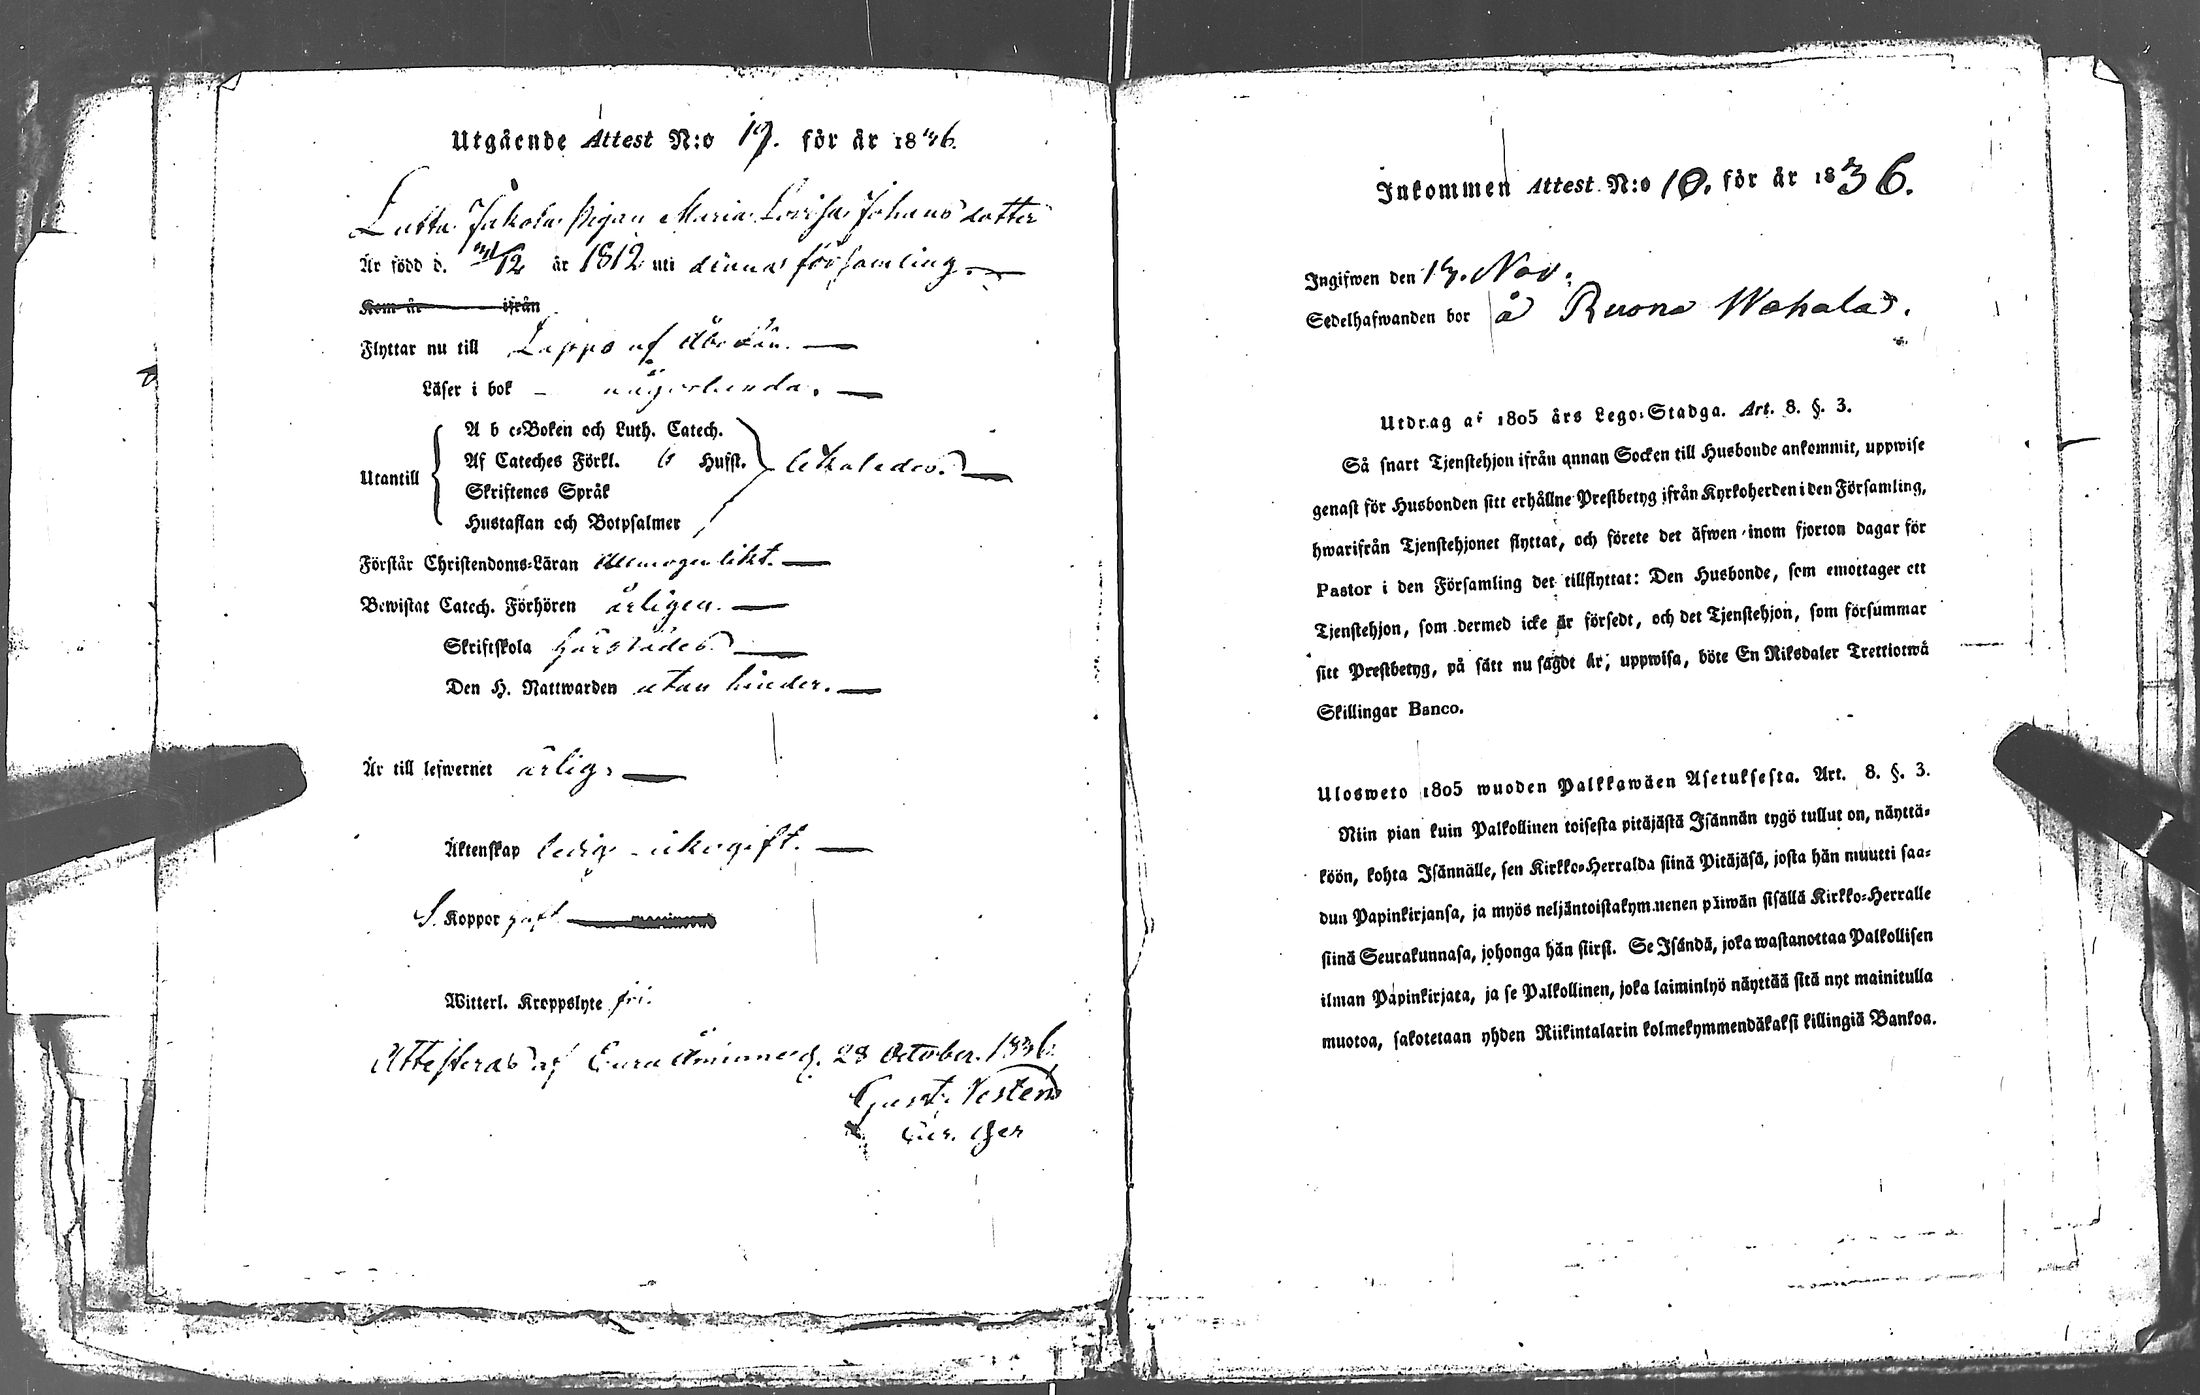 Utgående Attest N:o 17. för år 1836.
Luttu Jakola Pigan Maria Lovisa Johans dotter
Är född d. /12 år 1812 uti denna församling.
Kom år ifrån
Flyttar nu till Lappo af Åbo Län.
Läser i bok någorlunda.
A b c-Boken och Luth. Catech.
Af Cateches Förkl. 6 Hufst.
Utantill
Skriftenes Språk
Hustaflan och Botpsalmer
Förstår Christendoms-Läran allmogenlikt.
Bewistat Catech. Förhören årligen.
Skriftskola härstädes.
Den H. Nattwarden utan hinder.
Är till lefwernet ärlig.
Äktenskap ledig
S. Koppor haft
Witterl. Kroppslyte fri.
Attesteras af Eura Åminne d. 28 October. 1836.
Gust.
Inkommen Attest N:o 10. för år 1836.
Ingifwen den 17. Nov.
Sedelhafwanden bor å Ruona Wahala.
Utdrag af 1805 års Lego-Stadga. Art. 8. §. 3.
Så snart Tjenstehjon ifrån annan Socken till Husbonde ankommit, uppwise
genast för Husbonden sitt erhållne Prestbetyg ifrån Kyrkoherden i den Församling,
hwarifrån Tjenstehjonet flyttat, och förete det äfwen inom fjorton dagar för
Pastor i den Församling det tillflyttat: Den Husbonde, som emottager ett
Tjenstehjon, som dermed icke är försedt, och det Tjenstehjon, som försummar
sitt Prestbetyg, på sätt nu sagdt är, uppwisa, böte En Riksdaler Trettiotwå
Skillingar Banco.
Ulosweto 1805 wuoden Palkkawäen Asetuksesta. Art. 8. §. 3.
Niin pian kuin Palkollinen toisesta pitäjästä Isännän tygö tullut on, näyttä-
köön, kohta Isännälle, sen Kirkko-Herralda siinä Pitäjäsä, josta hän muutti saa-
dun Papinkirjansa, ja myös neljäntoistakymmenen päiwän sisällä Kirkko-Herralle
siinä Seurakunnasa, johonga hän siirsi. Se Isändä, joka wastanottaa Palkollisen
ilman Papinkirjata, ja se Palkollinen, joka laiminlyö näyttää sitä nyt mainitulla
muotoa, sakotetaan yhden Riikintalarin kolmekymmendäkaksi killingiä Bankoa.